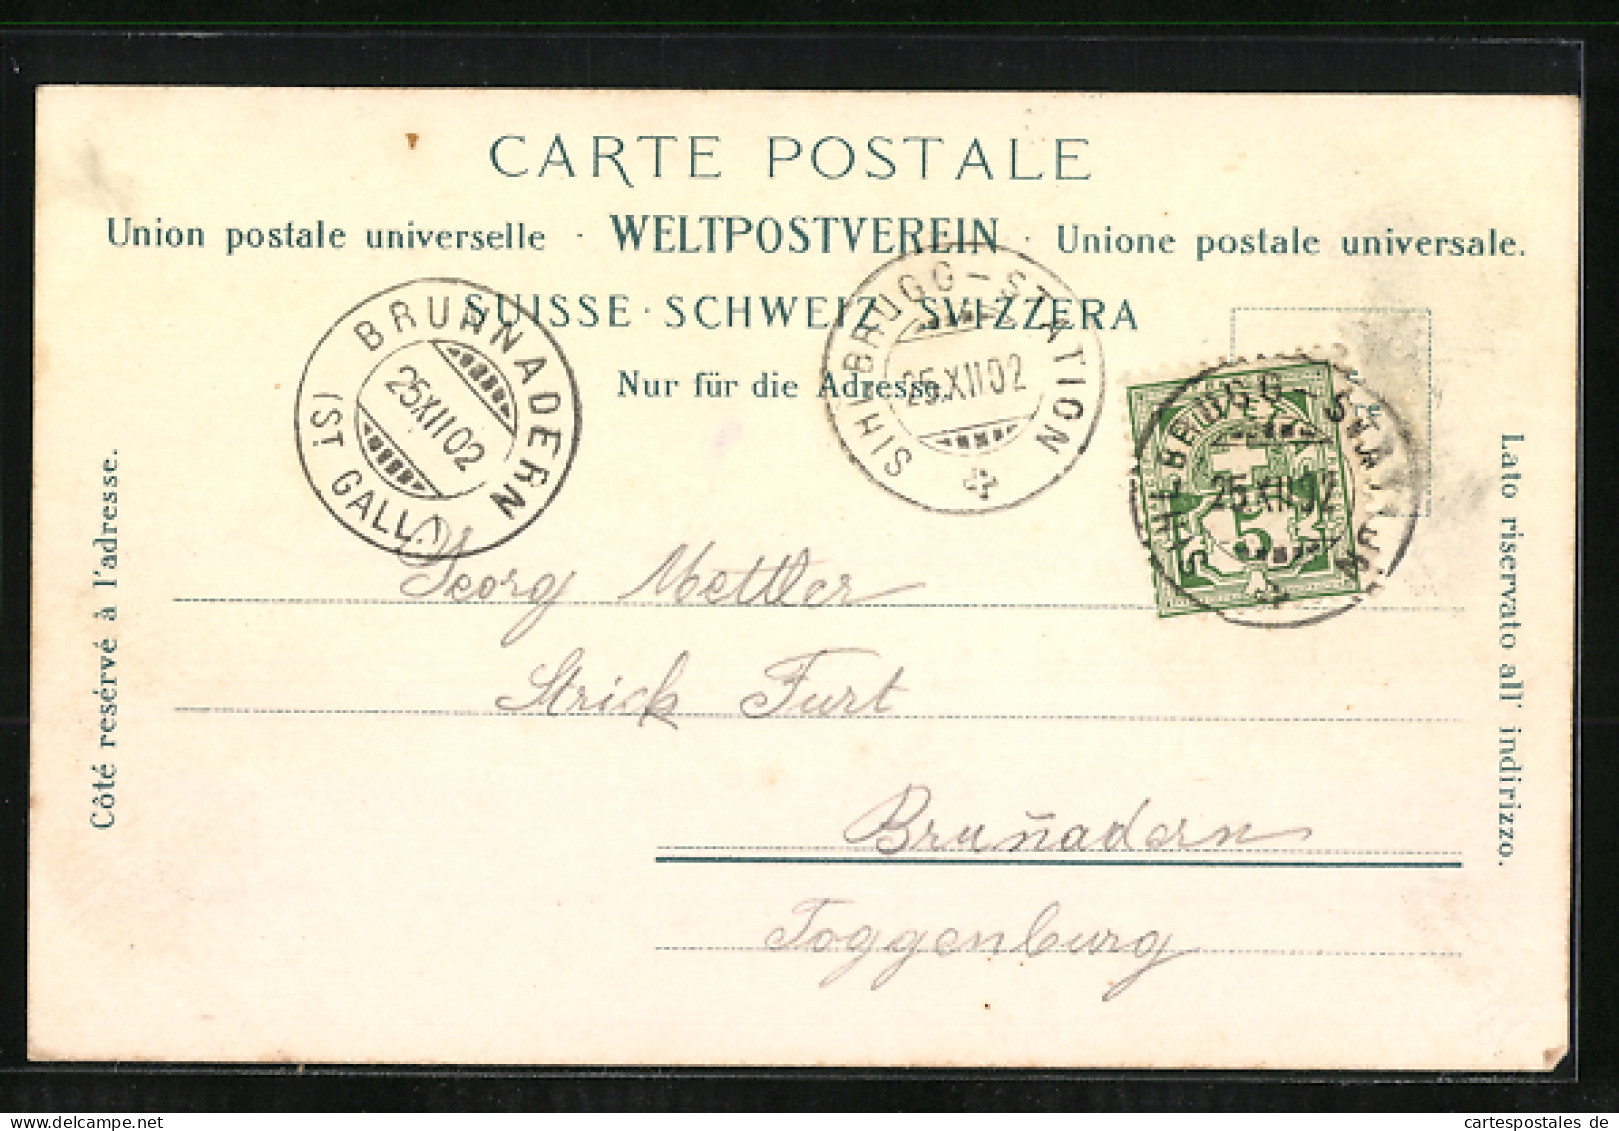 CARTE POSTALE
Union postale universelle · WELTPOSTVEREIN · Unione postale universale.
SUISSE · SCHWEIZ · SVIZZERA
Nur für die Adresse.
BRUNNADERN
25.XII.02
(ST GALL.)
SIHLBRUGG-STATION
25.XII.02
SIHLBRUGG-STATION
25.XII.02
5
Côté resérvé à l'adresse.
Lato riservato all' indirizzo.
Georg Mettler
Strick Furt
Bruñadern
Toggenburg
cartespostales de